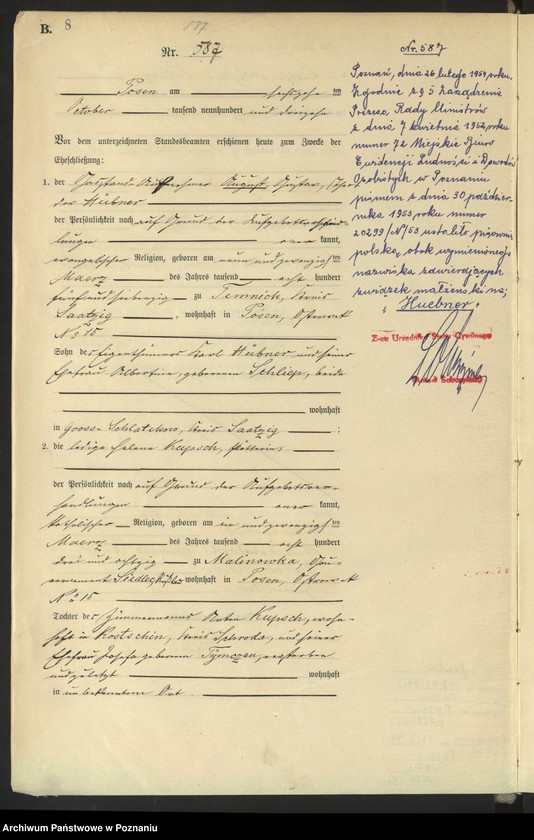 B. 8
587
Nr. 587
Posen am sechszehn ten
October tausend neunhundert und dreizehn
Vor dem unterzeichneten Standesbeamten erschienen heute zum Zwecke der
Eheschließung:
1. der August Gustav
der Hübner
der Persönlichkeit nach auf Grund der Aufgebotsverhand-
lungen aner kannt,
evangelischer Religion, geboren am neun und zwanzigsten
Maerz des Jahres tausend acht hundert
fünf und siebenzig zu Temnick, Kreis
Saatzig, wohnhaft in Posen, Ostrowek
No 15
Sohn des Eigenthümers Karl Hübner und seiner
Ehefrau Albertine, geborenen Schliep, beide
wohnhaft
in Grosse Schlatikow, Kreis Saatzig;
2. die ledige Helene Kupsch, Plätterin,
der Persönlichkeit nach auf Grund der Aufgebotsver-
handlungen aner kannt,
katholischer Religion, geboren am ein und zwanzigsten
Maerz des Jahres tausend acht hundert
drei und achtzig zu Malinowka, Gou-
vernement Siedlec, wohnhaft in Posen, Ostrowek
No 15
Tochter des Zimmermanns Anton Kupsch, wohn-
haft in Kostschin, Kreis Schroda, und seiner
Ehefrau Josefa geborenen, verstorben
und zuletzt wohnhaft
in unbekanntem Ort.
Nr. 587
Poznań, dnia 26 lutego 1954 roku.
Zgodnie z § 5 Zarządzenia
Prezesa Rady Ministrów
z dnia 7 kwietnia 1952 roku
numer 72 Miejskie Biuro
Ewidencji Ludności i Dowodów
Osobistych w Poznaniu
pismem z dnia 30 paździer-
nika 1953 roku numer
20299/N/53 ustaliło pisownię
polską, obok wymienionego
nazwiska zawierających
związek małżeński na:
"Huebner"
Z-ca Urzędnika Stanu Cywilnego
Archiwum Państwowe w Poznaniu